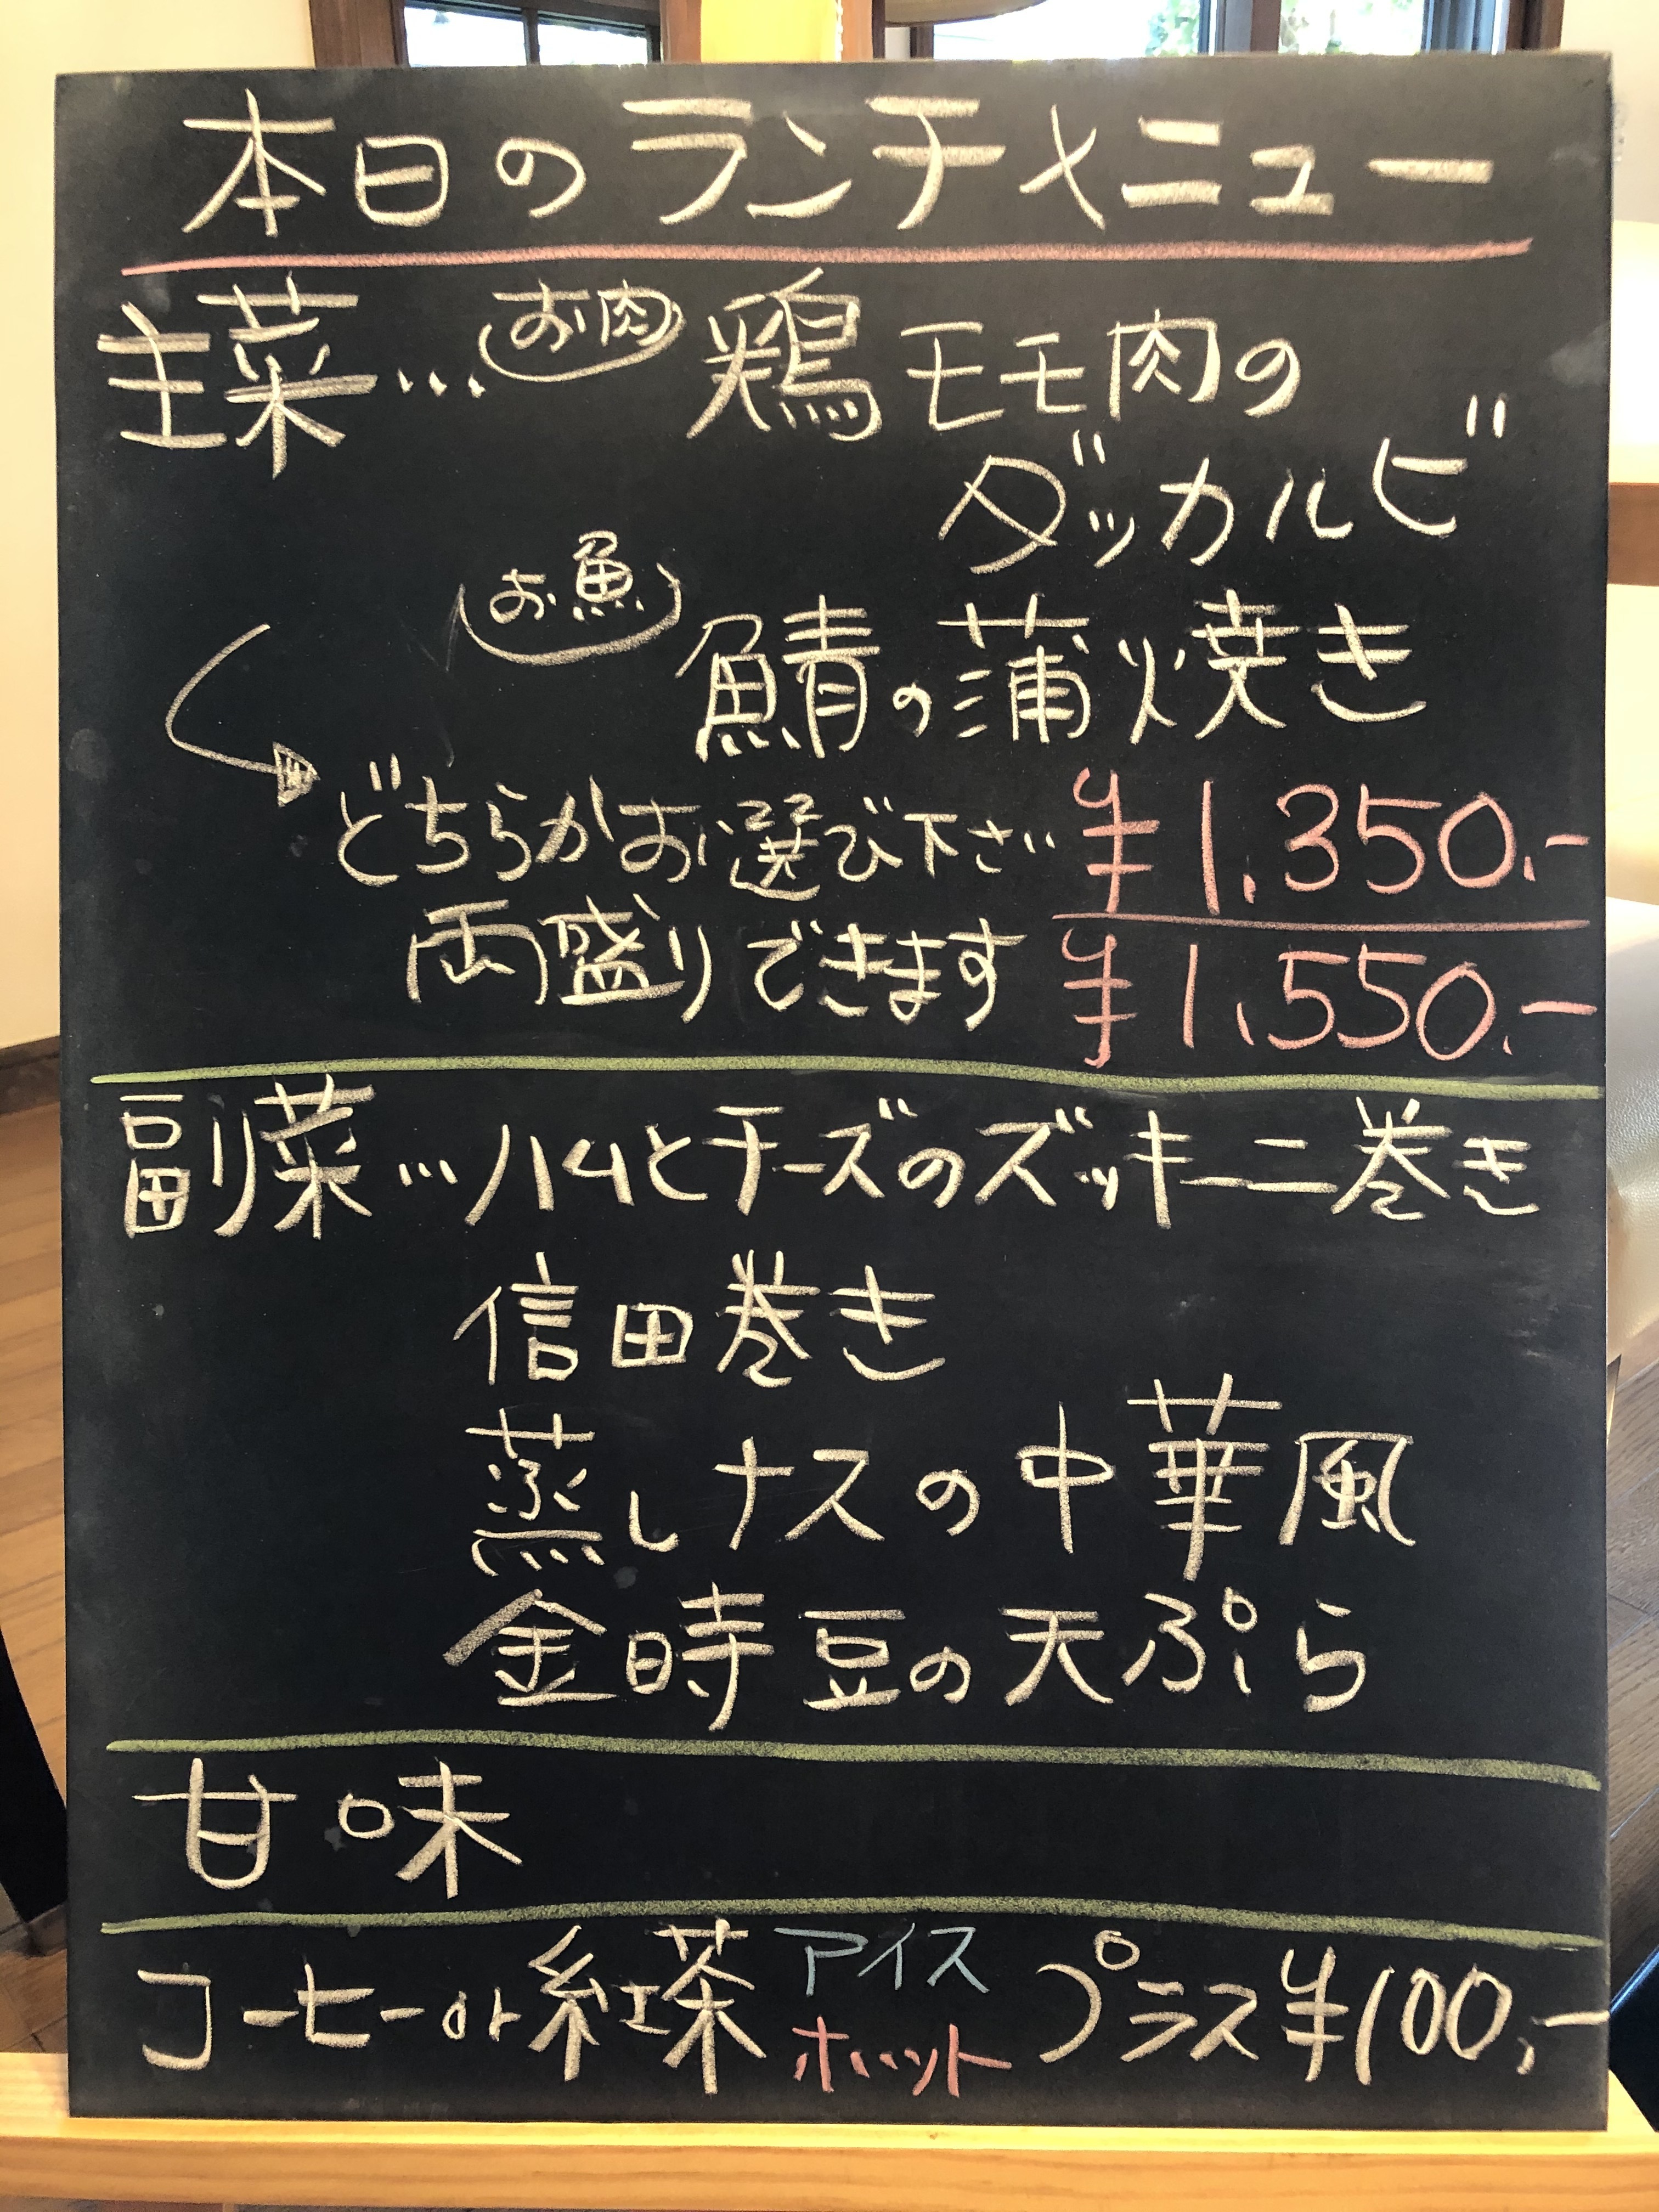 本日のランチメニュー
主菜…お肉 鶏モモ肉の
ダッカルビ
お魚 鯖の蒲焼き
どちらかお選び下さい ¥1.350.-
両盛りできます ¥1.550.-
副菜…ハムとチーズのズッキーニ巻き
信田巻き
蒸しナスの中華風
金時豆の天ぷら
甘味
コーヒーor紅茶 アイス ホット プラス¥100.-